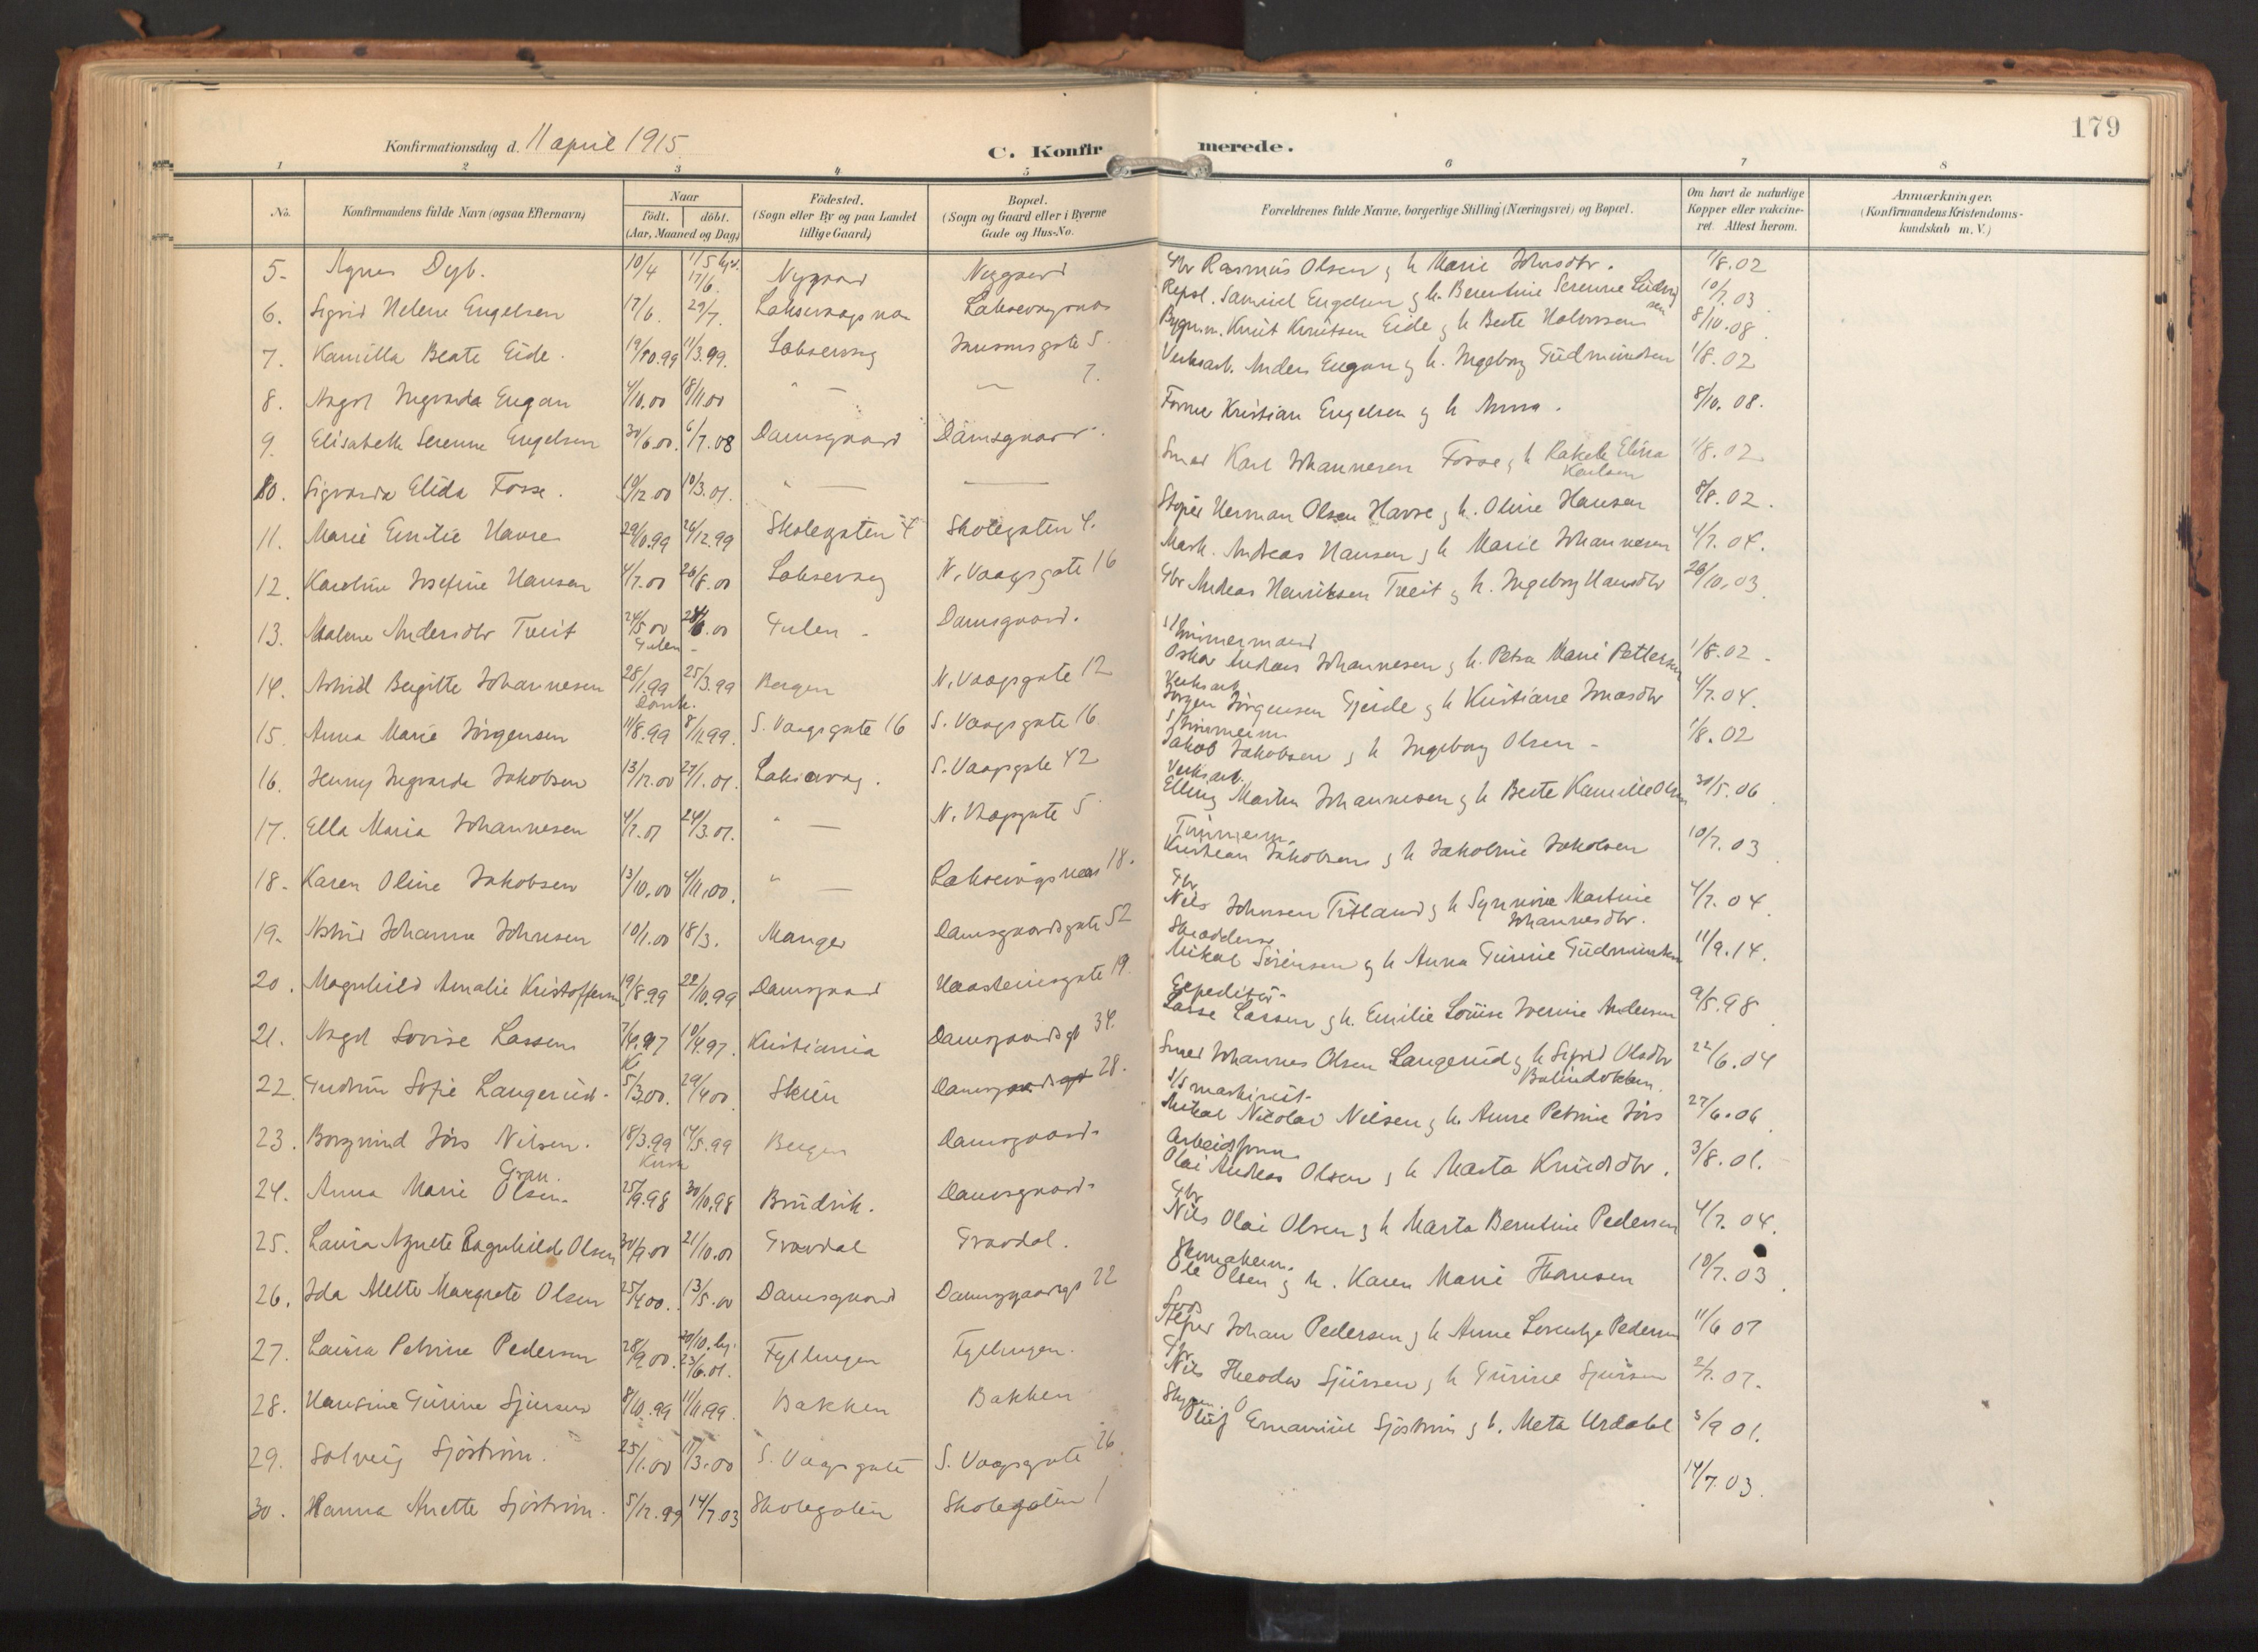 179
Konfirmationsdag d. 11 april 1915.
C. Konfir merede.
1 2 3 4 5 6 7 8
No. Konfirmandens fulde Navn (ogsaa Efternavn) Naar födt. döbt. (Aar, Maaned og Dag) Födested. (Sogn eller By og paa Landet tillige Gaard) Bopæl. (Sogn og Gaard eller i Byerne Gade og Hus-No. Forældrenes fulde Navne, borgerlige Stilling (Næringsvei) og Bopæl. Om havt de naturlige Kopper eller vakcineret. Attest herom. Anmærkninger. (Konfirmandens Kristendomskundskab m. V.)
5. Agnes Dyb. 10/4 17/6. Nygaard Nygaard Gbr Rasmus Olsen & h Marie Johnsdtr. 1/8.02
6. Sigrid Helene Engelsen 17/6. 29/7. Laksevaagsnes Laksevaagsnes Repsl. Samuel Engelsen & h. Berentine Serenne Ludvigsen 10/7.03
7. Kamilla Beate Eide. 19/10.99 11/3.99. Laksevaag 5. Knut Knutsen Eide & h Beate 8/10.08
8. Engan 4/10.00 18/11.00 " — — 7. Verksarb. Anders Engan & h. Ingeborg Gudmundsen 1/8.02
9. Elisabeth Serenne Engelsen 30/6.00. 6/7.08 Damsgaard Damsgaard. Kristian Engelsen & h Anna. 8/10.08.
10. Sigvarda Elida Fosse. 19/12.00 10/3.01. " — — Smed Karl Johannesen Fosse & h Rakel Elina Karlsen 1/8.02
11. Marie Emilie Havre 29/10.99 26/12.99 Skolegaten 4 Skolegaten 4. Støper Herman Olsen Havre & h. Oline Hansen 8/8.02.
12. Karoline Josefine Hansen 4/7.00 26/8.00 Laksevaag N. Vaagsgate 16 Mask. Andreas Hansen & h Marie Johannesen 4/7.04.
13. Malene Andersdtr Tveit 24/5.00 24/6.00 Gulen - Damsgaard. Gbr Andreas Henriksen Tveit & h. Ingeborg Hansdtr 26/10.03
Gulen -
14. Astrid Bergitte Johannesen 28/1.99 25/3.99 Bergen N. Vaagsgate 12 Tømmermand Oskar Andreas Johannesen & h. Petra Marie Pettersen 1/8.02
15. Anna Marie Jörgensen 11/8.99 8/11.99. S. Vaagsgate 16 S. Vaagsgate 16 Verksarb. Jörgen Jörgensen Gjeide & h Kristiane Jonasdtr 4/7.04.
16. Henny Ingvarda Jakobsen 13/12.00 27/1.01. Laksevaag. S. Vaagsgate 42 Jakob Jakobsen & h Ingeborg Olsen - 1/8.02
17. Ella Maria Johannesen 4/2.01 24/3.01. " — N. Vaagsgate 5 Verksarb. Elling Martin Johannesen & h Berte Kamille Olsen 30/5.06
18. Karen Oline Jakobsen 13/10.00 4/11.00. " — Laksevaagsnes 18. Kristian Jakobsen & h Jakobine Jakobsen 10/7.03
19. Astrid Johanna Johnsen 10/1.00 18/3. Manger Damsgaardsgate 52 Gbr Nils Johnsen Titland & h Synneve Martine Johannesdtr. 4/7.04
20. Magnhild Amalie Kristoffersen 19/8.99 22/10.99 Damsgaard Haasteinsgate 19. Mikal Sörensen & h Anna Gurine Gudmundsen 11/9.14
21. Lovise Lassen 7/4.97 10/4.97. Kristiania Damsgaardsgt 34. Expeditør - Lasse Lassen & h. Emilie Louise Iverine Andersen 9/5.98
22. Gudrun Sofie Langerud. 5/3.00. 29/4.00 Skien Damsgaardsgt 28. Smed Johannes Olsen Langerud & h Sigrid Olsdtr 22/6.04
23. Borgund Jörs Nilsen. 18/3.99 14/5.99 Bergen Damsgaard. s/s maskinist. Mikal Nicolai Nilsen & h. Anne Petrine Jörs 27/6.06
24. Anna Marie Olsen 25/9.98 30/10.98 Damsgaard Arbeidsform. Olai Andreas Olsen & h Marta Knudsdtr. 3/8.01.
25. Laura Agnete Ragnhild Olsen 30/9.00 21/10.00 Gravdal Gravdal. Gbr Nils Olai Olsen & h Marta Berntine Pedersen 4/7.04.
26. Ida Mette Margrete Olsen 25/4.00. 13/5.00 Damsgaard Damsgaardsgt 22 Skomakerm. Ole Olsen & h. Karen Marie Hansen 10/7.03
27. Laura Petrine Pedersen 28/9.00. 23/6.01. Fyllingen Fyllingen. Støper Johan Pedersen & h Anne Lorentze Pedersen 11/6 07
28. Hansine Gurine Sjursen 8/10.99 11/11.99. Bakken Bakken Gbr Nils Theodor Sjursen & h Gurine Sjursen 2/7.07.
29. Solveig Sjöström. 25/1.00 17/3.00 S. Vaagsgate S. Vaagsgate 26. Oluf Emanuel Sjöström & h. Meta Urdahl 3/9 01.
30. Hanna Anette Sjöström. 5/12.99 14/7.03 Skolegaten Skolegaten 1 14/7.03.